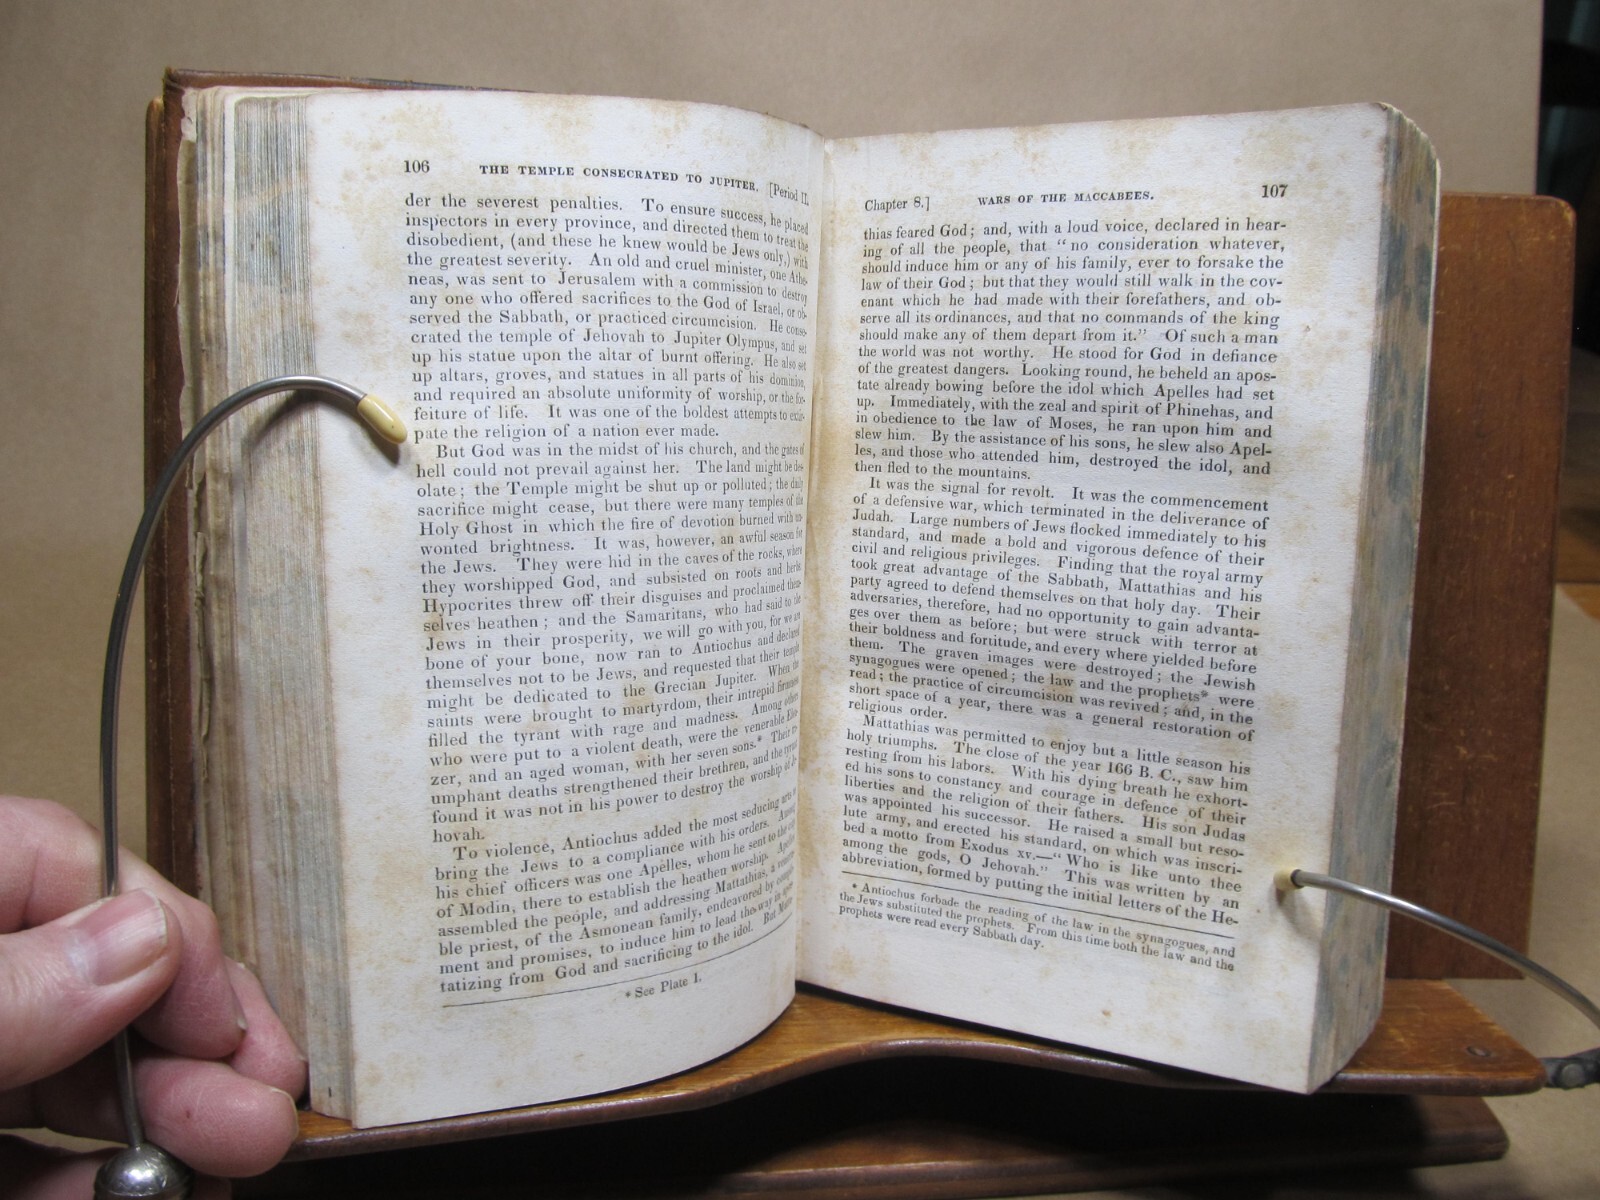 106 THE TEMPLE CONSECRATED TO JUPITER. [Period II.
der the severest penalties. To ensure success, he placed
inspectors in every province, and directed them to treat the
disobedient, (and these he knew would be Jews only,) with
the greatest severity. An old and cruel minister, one Athe-
neas, was sent to Jerusalem with a commission to destroy
any one who offered sacrifices to the God of Israel, or ob-
served the Sabbath, or practiced circumcision. He conse-
crated the temple of Jehovah to Jupiter Olympus, and set
up his statue upon the altar of burnt offering. He also set
up altars, groves, and statues in all parts of his dominion,
and required an absolute uniformity of worship, or the for-
feiture of life. It was one of the boldest attempts to extir-
pate the religion of a nation ever made.
But God was in the midst of his church, and the gates of
hell could not prevail against her. The land might be des-
olate; the Temple might be shut up or polluted; the daily
sacrifice might cease, but there were many temples of the
Holy Ghost in which the fire of devotion burned with un-
wonted brightness. It was, however, an awful season for
the Jews. They were hid in the caves of the rocks, where
they worshipped God, and subsisted on roots and herbs.
Hypocrites threw off their disguises and proclaimed them-
selves heathen; and the Samaritans, who had said to the
Jews in their prosperity, we will go with you, for we are
bone of your bone, now ran to Antiochus and declared
themselves not to be Jews, and requested that their temple
might be dedicated to the Grecian Jupiter. When the
saints were brought to martyrdom, their intrepid firmness
filled the tyrant with rage and madness. Among others
who were put to a violent death, were the venerable Elea-
zer, and an aged woman, with her seven sons.* Their tri-
umphant deaths strengthened their brethren, and the tyrant
found it was not in his power to destroy the worship of Je-
hovah.
To violence, Antiochus added the most seducing arts to
bring the Jews to a compliance with his orders. Among
his chief officers was one Apelles, whom he sent to the city
of Modin, there to establish the heathen worship. Apelles
assembled the people, and addressing Mattathias, a venera-
ble priest, of the Asmonean family, endeavored by compli-
ment and promises, to induce him to lead the way in apos-
tatizing from God and sacrificing to the idol. But Matta-
* See Plate I.
Chapter 8.] WARS OF THE MACCABEES. 107
thias feared God; and, with a loud voice, declared in hear-
ing of all the people, that "no consideration whatever,
should induce him or any of his family, ever to forsake the
law of their God; but that they would still walk in the cov-
enant which he had made with their forefathers, and ob-
serve all its ordinances, and that no commands of the king
should make any of them depart from it." Of such a man
the world was not worthy. He stood for God in defiance
of the greatest dangers. Looking round, he beheld an apos-
tate already bowing before the idol which Apelles had set
up. Immediately, with the zeal and spirit of Phinehas, and
in obedience to the law of Moses, he ran upon him and
slew him. By the assistance of his sons, he slew also Apel-
les, and those who attended him, destroyed the idol, and
then fled to the mountains.
It was the signal for revolt. It was the commencement
of a defensive war, which terminated in the deliverance of
Judah. Large numbers of Jews flocked immediately to his
standard, and made a bold and vigorous defence of their
civil and religious privileges. Finding that the royal army
took great advantage of the Sabbath, Mattathias and his
party agreed to defend themselves on that holy day. Their
adversaries, therefore, had no opportunity to gain advanta-
ges over them as before; but were struck with terror at
their boldness and fortitude, and every where yielded before
them. The graven images were destroyed; the Jewish
synagogues were opened; the law and the prophets* were
read; the practice of circumcision was revived; and, in the
short space of a year, there was a general restoration of
religious order.
Mattathias was permitted to enjoy but a little season his
holy triumphs. The close of the year 166 B. C., saw him
resting from his labors. With his dying breath he exhort-
ed his sons to constancy and courage in defence of their
liberties and the religion of their fathers. His son Judas
was appointed his successor. He raised a small but reso-
lute army, and erected his standard, on which was inscri-
bed a motto from Exodus xv.—"Who is like unto thee
among the gods, O Jehovah." This was written by an
abbreviation, formed by putting the initial letters of the He-
* Antiochus forbade the reading of the law in the synagogues, and
the Jews substituted the prophets. From this time both the law and the
prophets were read every Sabbath day.